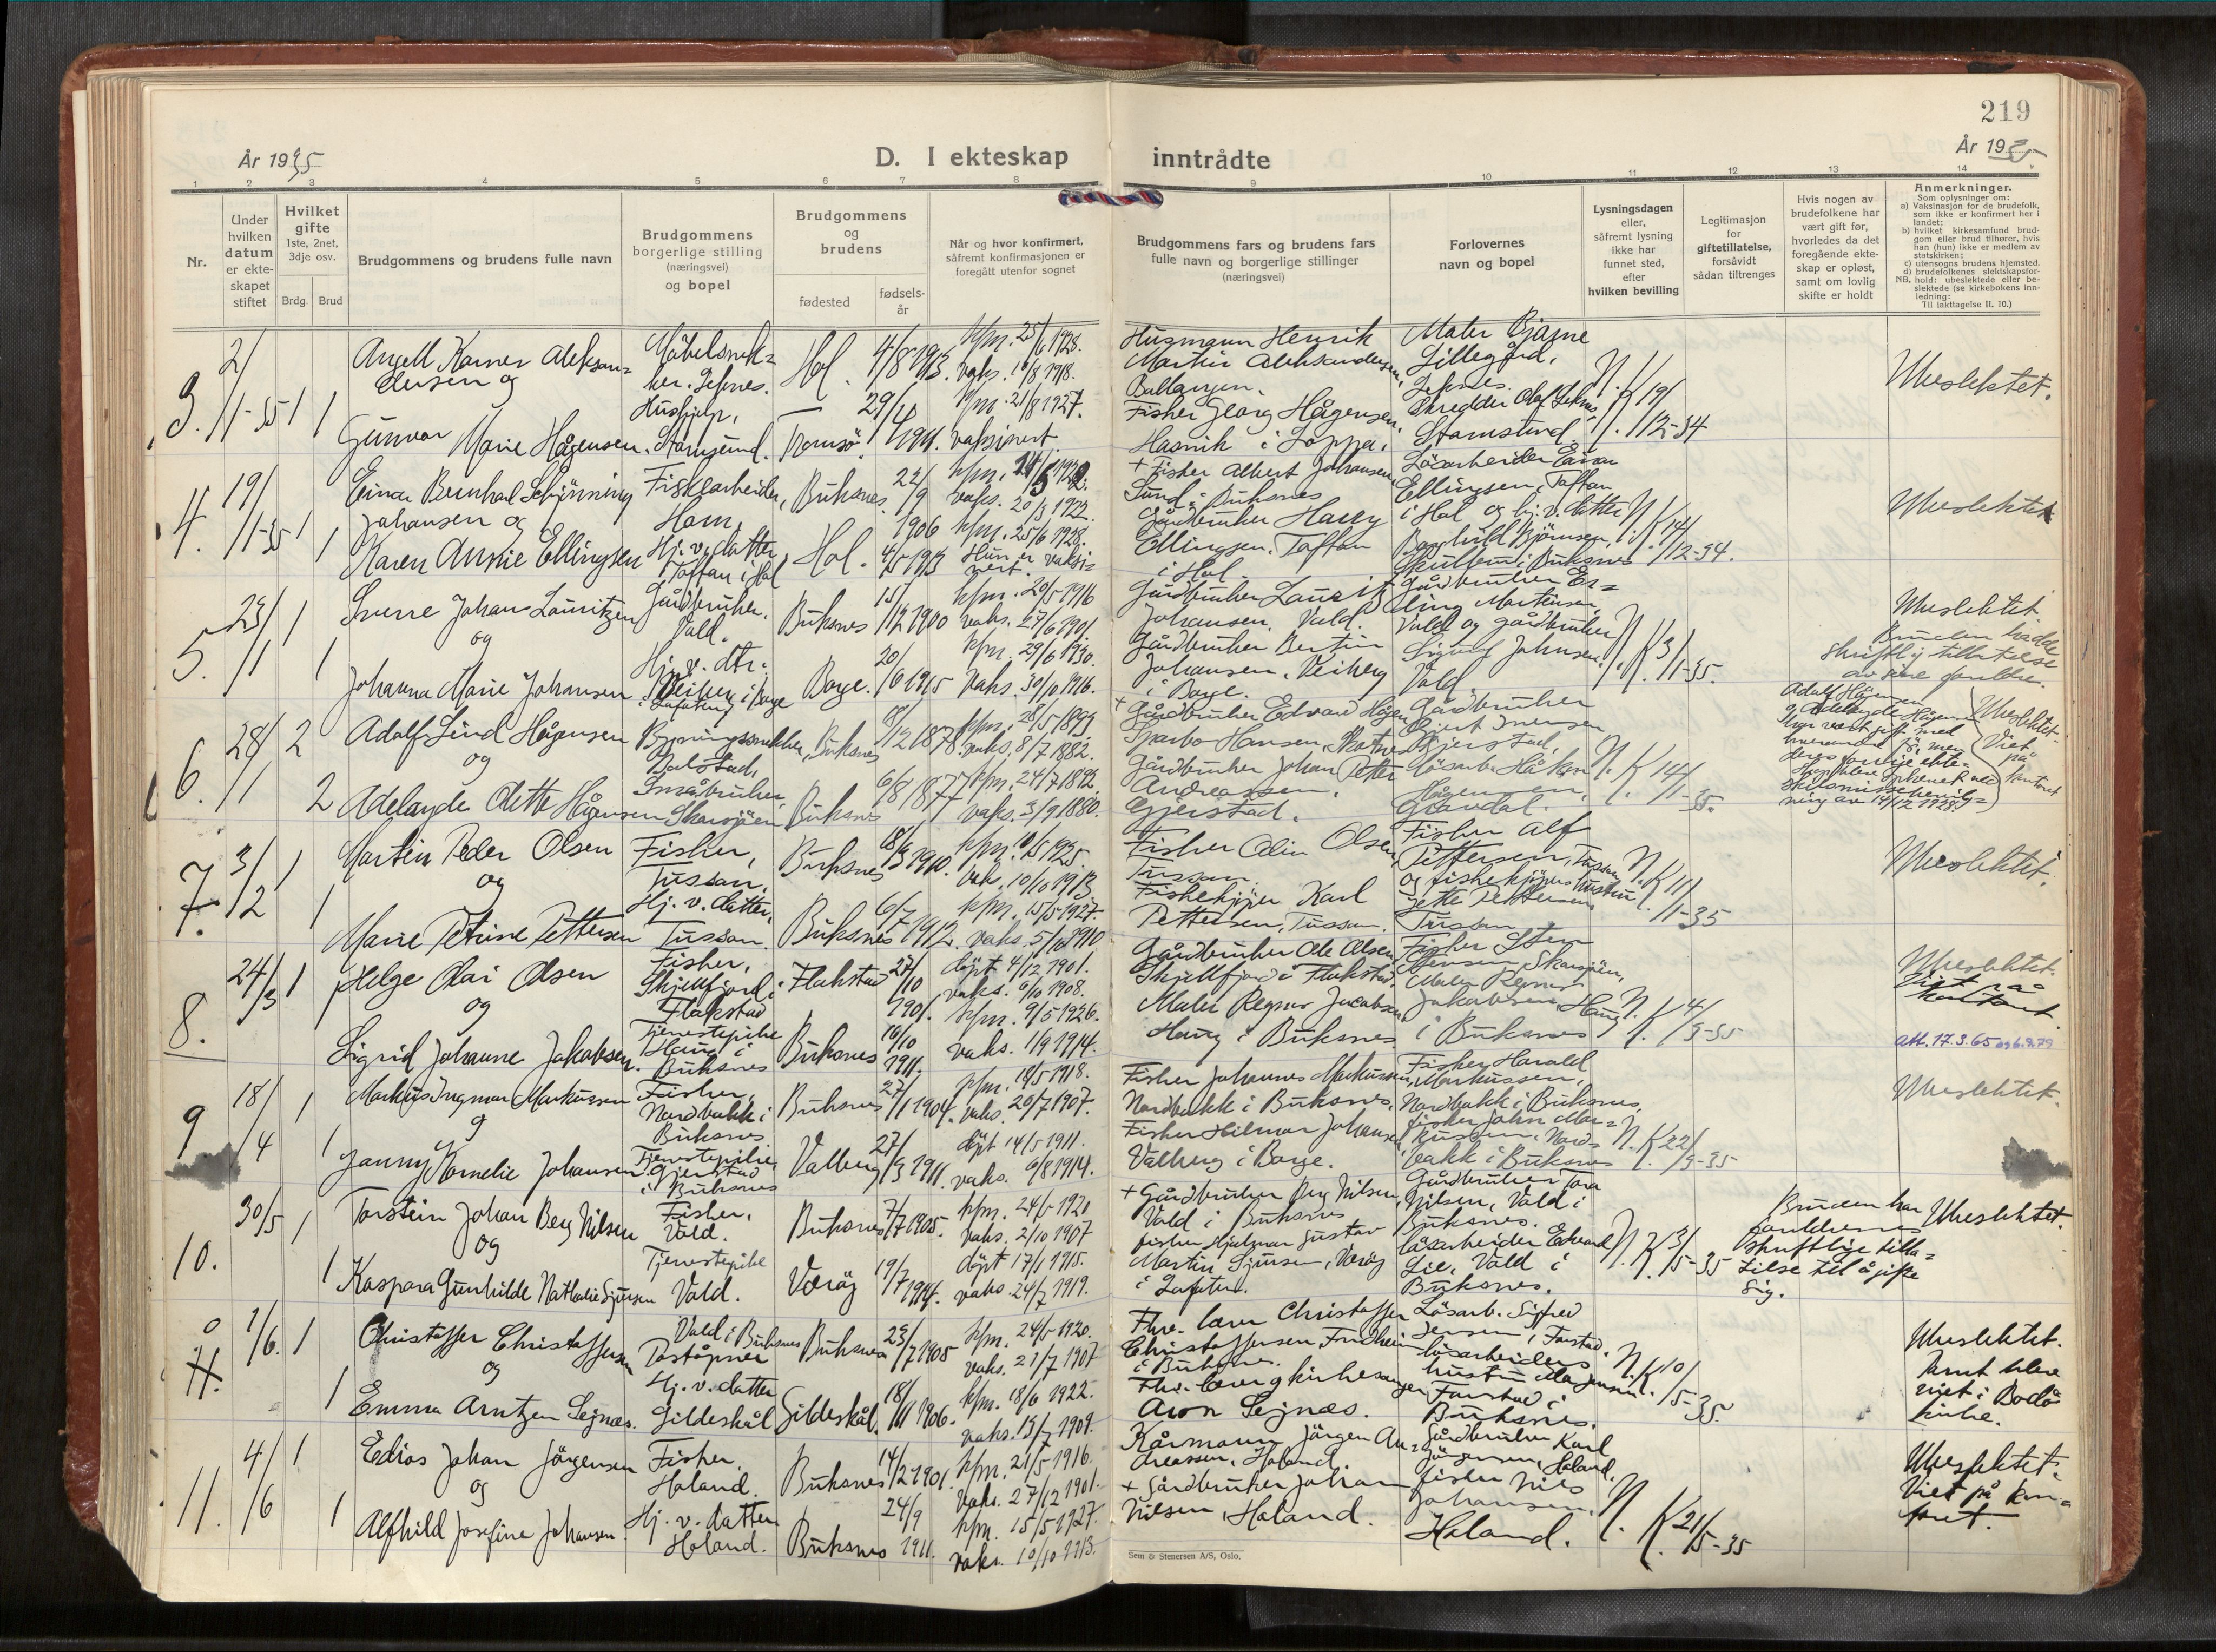 219
År 1935
D. I ekteskap
inntrådte
År 1935
1 2 3 4 5 6 7 8 9 10 11 12 13 14
Nr.
Under
hvilken
datum
er ekte-
skapet
stiftet
Hvilket
gifte
1ste, 2net,
3dje osv.
Brdg. Brud
Brudgommens og brudens fulle navn
Brudgommens
borgerlige stilling
(næringsvei)
og bopel
Brudgommens
og
brudens
fødested
fødsels-
år
Når og hvor konfirmert,
såfremt konfirmasjonen er
foregått utenfor sognet
Brudgommens fars og brudens fars
fulle navn og borgerlige stillinger
(næringsvei)
Forlovernes
navn og bopel
Lysningsdagen
eller,
såfremt lysning
ikke har
funnet sted,
efter
hvilken bevilling
Legitimasjon
for
giftetillatelse,
forsåvidt
sådan tiltrenges
Hvis nogen av
brudefolkene har
vært gift før,
hvorledes da det
foregående ekte-
skap er opløst,
samt om lovlig
skifte er holdt
Anmerkninger.
Som oplysninger om:
a) Vaksinasjon for de brudefolk,
som ikke er konfirmert her i
landet;
b) hvilket kirkesamfund brud-
gom eller brud tilhører, hvis
han (hun) ikke er medlem av
statskirken;
c) utensogns brudens hjemsted.
d) brudefolkenes slektskapsfor-
NB. hold: ubeslektede eller be-
slektede (se kirkebokens inn-
ledning:
Til iakttagelse II, 10.)
3. 2/1-35 1 1
Angell Karner Aleksan=
dersen og
Gunvor Marie Hågensen.
Møbelsnek=
ker. Leknes.
Hushjelp,
Stamsund.
Hol. 4/8 1913.
Tromsø. 29/4 1911.
kfm. 25/6 1928.
vaks. 18/8 1918.
kfm. 21/8 1927.
vaksinert.
Husmann Henrik
Martin Aleksandersen,
Ballangen.
Fisker Georg Hågensen,
Hasvik i Loppa.
Maler Bjarne
Lillegård,
Leknes.
Skredder Olaf Leknes,
Stamsund.
N.K. 19/12-34
Ubeslektet.
4. 19/1-35 1 1
Einar Bernhard Schjønning
Johansen og
Karen Annie Ellingsen
Fiskearbeider,
Horn,
Hj. v. datter,
Taftan i Hol
Buksnes. 22/9 1906
Hol. 4/5 1913
vaks. 20/3 1922.
kfm. 25/6 1928.
Hun er vaksi=
nert.
+ Fisker Albert Johansen,
Sund i Buksnes
Gårdbruker Harry
Ellingsen, Taftan
i Hol
Løsarbeider Einar
Ellingsen, Taftan
i Hol og hj. v. datter
Borghild Bjørnsen,
i Buksnes
N.K. 14/12-34.
Ubeslektet
5. 23/1 1 1
Sverre Johans Lauritzen
og
Johanna Marie Johansen
Gårdbruker.
Vald.
Hj. v. dtr.
Buksnes 15/12 1900
Borge. 20/6 1915
kfm. 20/5 1916
vaks. 27/6 1901
kfm. 29/6 1930.
vaks. 30/10 1916.
Gårdbruker Laurits
Johansen. Vald.
Gårdbruker Bertin
Johansen, Reiberg
i Borge.
Gårdbruker Er=
ling Martinsen,
Vald og gårdbruker
Sigurd Johnsen,
Vald
N.K. 3/1-35.
Ubeslektet.
Bruden hadde
skriftlig tillatelse
av sine foreldre.
6. 28/1 2 2
Adolf Lind Hågensen
og
Adelayde Olette Hågensen
Bygningssnekker,
Balstad,
Småbruker,
Skarsjøen
Buksnes 18/12 1878
Buksnes 6/8 1877
kfm. 28/5 1893.
vaks. 8/7 1882.
kfm. 24/7 1892.
vaks. 3/9 1880.
+ Gårdbruker Edvard Hågen
Hansen,
Gårdbruker Johan Petter
Andreassen.
Gjerstad.
Gårdbruker
Iversen
Gjerstad,
løsarb. Håkon
Hågensen,
Gravdal.
N.K. 14/1-35.
Adolf Hågensen
og Adelayde Hågensen
har vært gift med
hverandre før, men
deres forrige ekte=
skap blev opløst ved
skilsmissebevilg=
ning av 14/12 1928.
Ubeslektet.
Viet
på
kontoret
7. 3/2 1 1
Martin Peder Olsen
og
Marie Petrine Pettersen
Fisker,
Tussan.
Hj. v. datter,
Tussan.
Buksnes 18/3 1910.
Buksnes 6/7 1912.
kfm. 10/5 1925.
vaks. 10/10 1913
kfm. 15/5 1927.
vaks. 5/10 1910
Fisker Olin Olsen,
Tussan.
Fiskekjøper Karl
Pettersen, Tussan.
Fisker Alf
Pettersen, Tussan
og fiskekjøpers hustru
Jette Pettersen
Tussan
N.K. 11/1-35
Ubeslektet.
8. 24/3 1 1
Helge Olai Olsen
og
Sigrid Johanne Jakobsen.
Fisker,
Skjelfjord i
Flakstad
Tjenestepike
Haug i
Buksnes
Flakstad 27/10 1901.
Buksnes 10/10 1911.
døpt 4/12 1901.
vaks. 6/10 1908.
kfm. 9/5 1926.
vaks. 1/9 1914.
Gårdbruker Ole Olsen,
Skjelfjord i Flakstad
Maler Regnor Jacobsen
Haug i Buksnes
Fisker Sten
Jensen, Skarsjøen,
Maler Regnor
Jakobsen, Haug
i Buksnes
N.K. 4/3-35
Ubeslektet.
Viet på
kontoret.
att. 17.3.65 og 6.9.79
9 18/4 1 1
Markus Ingmar Markussen
og
Janny Kornelie Johansen
Fisker,
Nordbakk i
Buksnes.
Tjenestepike,
Gjerstad
i Buksnes
Buksnes 27/1 1904.
Valberg 27/3 1911.
kfm. 18/5 1918.
vaks. 20/7 1907.
døpt 14/5 1911.
vaks. 6/8 1914.
Fisker Johannes Markussen,
Nordbakk i Buksnes,
Fisker Hilmar Johansen,
Valberg i Borge.
Fisker Harald
Markussen,
Nordbakk i Buksnes,
fisker John Mar=
kussen, Nord=
bakk i Buksnes
N.K. 22/3-35
Ubeslektet.
10. 30/5 1 1
Torstein Johan Berg Nilsen
og
Kaspara Gunhilde Nathalie Sjursen
Fisker,
Vald.
Tjenestepike
Vald.
Buksnes 7/7 1905.
Værøy 19/7 1914.
kfm. 24/5 1920
vaks. 2/10 1907
døpt 17/1 1915.
vaks. 24/7 1919.
+ Gårdbruker Berg Nilsen,
Vald i Buksnes
fisker Hjalmar Gustav
Martin Sjursen, Værøy
i Lofoten.
Gårdbruker Tora
Nilsen, Vald i
Buksnes.
løsarbeider Edvard
Lie, Vald i
Buksnes.
N.K. 3/5-35
Bruden har
foreldrenes
skriftlige tilla=
telse til å gifte
sig.
Ubeslektet.
0 11. 1/6. 1 1
Christoffer Christoffersen
og
Emma Arntzen Seines.
Vald i Buksnes
Poståpner
Hj. v. datter
Gildeskål
Buksnes 23/7 1905
Gildeskål. 18/11 1906.
kfm. 24/5 1920.
vaks. 21/7 1907
kfm. 18/6 1922.
vaks. 13/7 1909.
Fhv. lærer Christoffer
Christoffersen, Fredheim
i Buksnes.
Fhv. lærer og kirkesanger
Aron Sejnæs.
Løsarb. Sigfred
Jensen, Farstad.
løsarbeiders
hustru Jensen
Farstad i
Buksnes.
N.K. 10/5-35.
Ubeslektet.
Paret blev
viet i Bodø
kirke.
11. 4/6 1 1
Edias Johan Jørgensen
og
Alfhild Josefine Johansen.
Fisker,
Holand.
Hj. v. datter
Holand.
Buksnes 14/2 1901.
Buksnes 24/9 1911.
kfm. 21/5 1916.
vaks. 27/12 1901.
kfm. 15/5 1927.
vaks. 10/10 1913.
Kårmann Jørgen An=
dreassen, Holand.
+ Gårdbruker Johan
Nilsen, Holand.
Gårdbruker Karl
Jørgensen, Holand.
fisker Nils
Johansen.
Holand.
N.K. 21/5-35
Ubeslektet.
Viet på kon=
toret.
Sem & Stenersen A/S, Oslo.